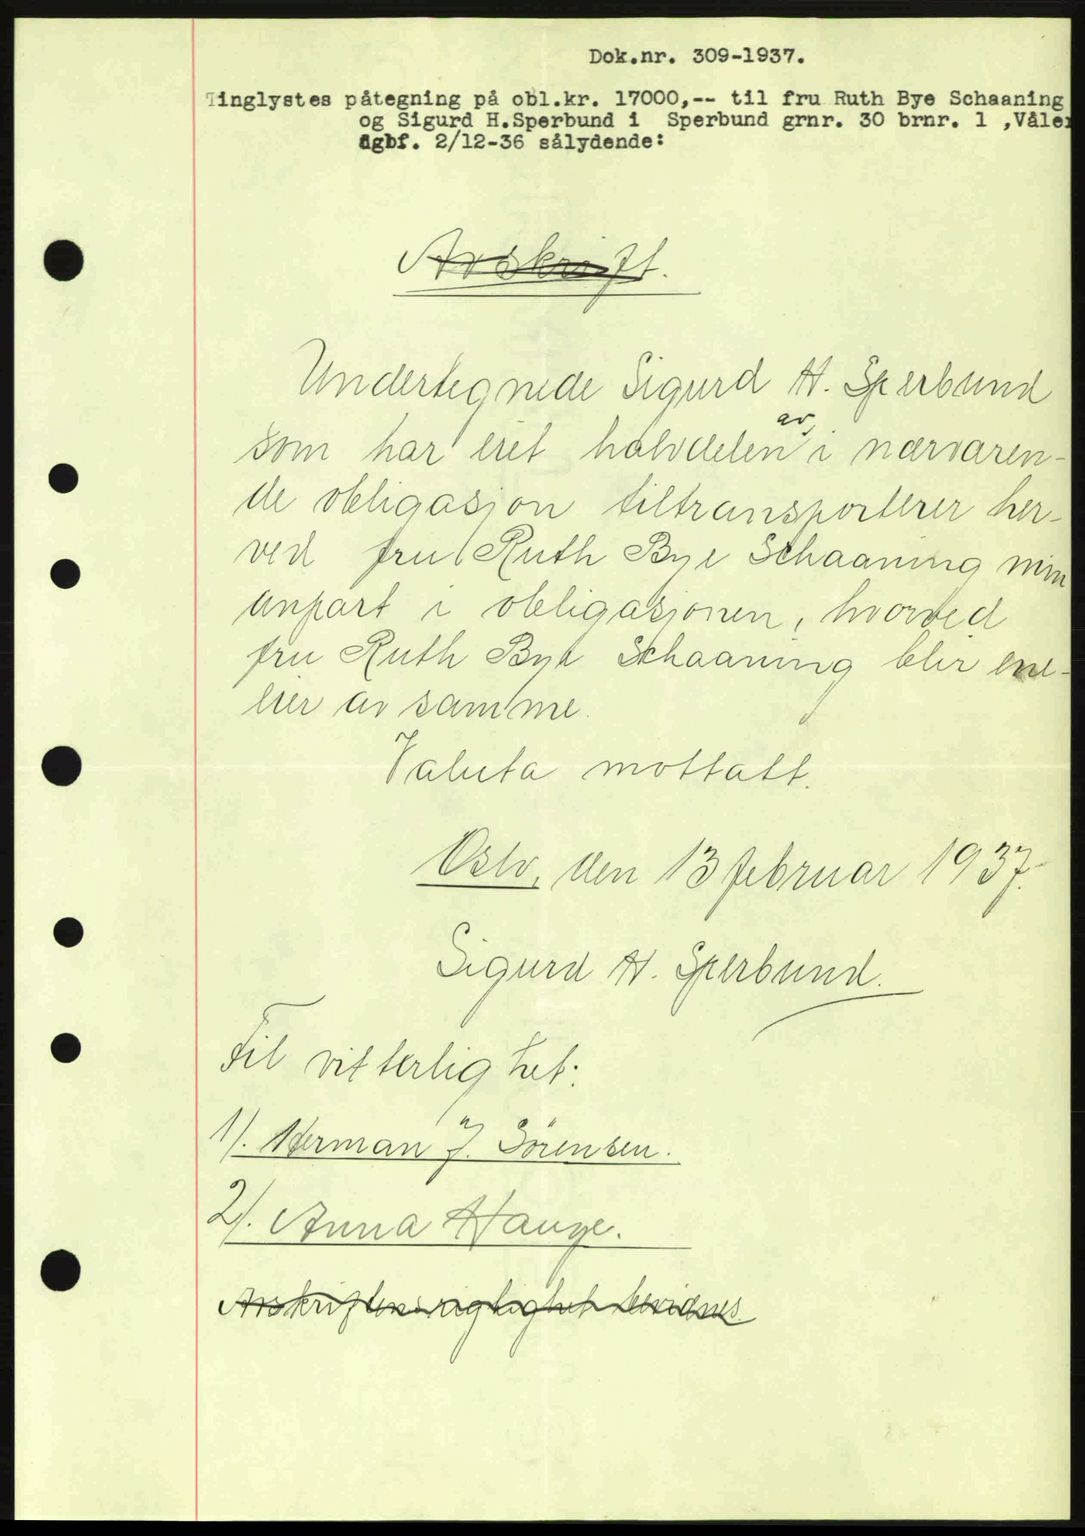 Dok.nr. 309-1937.
Tinglystes påtegning på obl.kr. 17000,-- til fru Ruth Bye Schaaning
og Sigurd H.Sperbund i Sperbund grnr. 30 brnr. 1 ,Våler
dgbf. 2/12-36 sålydende:
Avskrift.
Undertegnede Sigurd H. Sperbund
av
som har eiet halvdelen i nærværen-
de obligasjon tiltransporterer her-
ved fru Ruth Bye Schaaning min
anpart i obligasjonen, hvorved
fru Ruth Bye Schaaning blir ene-
eier av samme.
Valuta mottatt.
Oslo, den 13 februar 1937.
Sigurd H. Sperbund.
Til vitterlighet:
1/. Herman J. Sörensen.
2/. Anna Hauge.
Avskriftens rigtighet bevidnes.